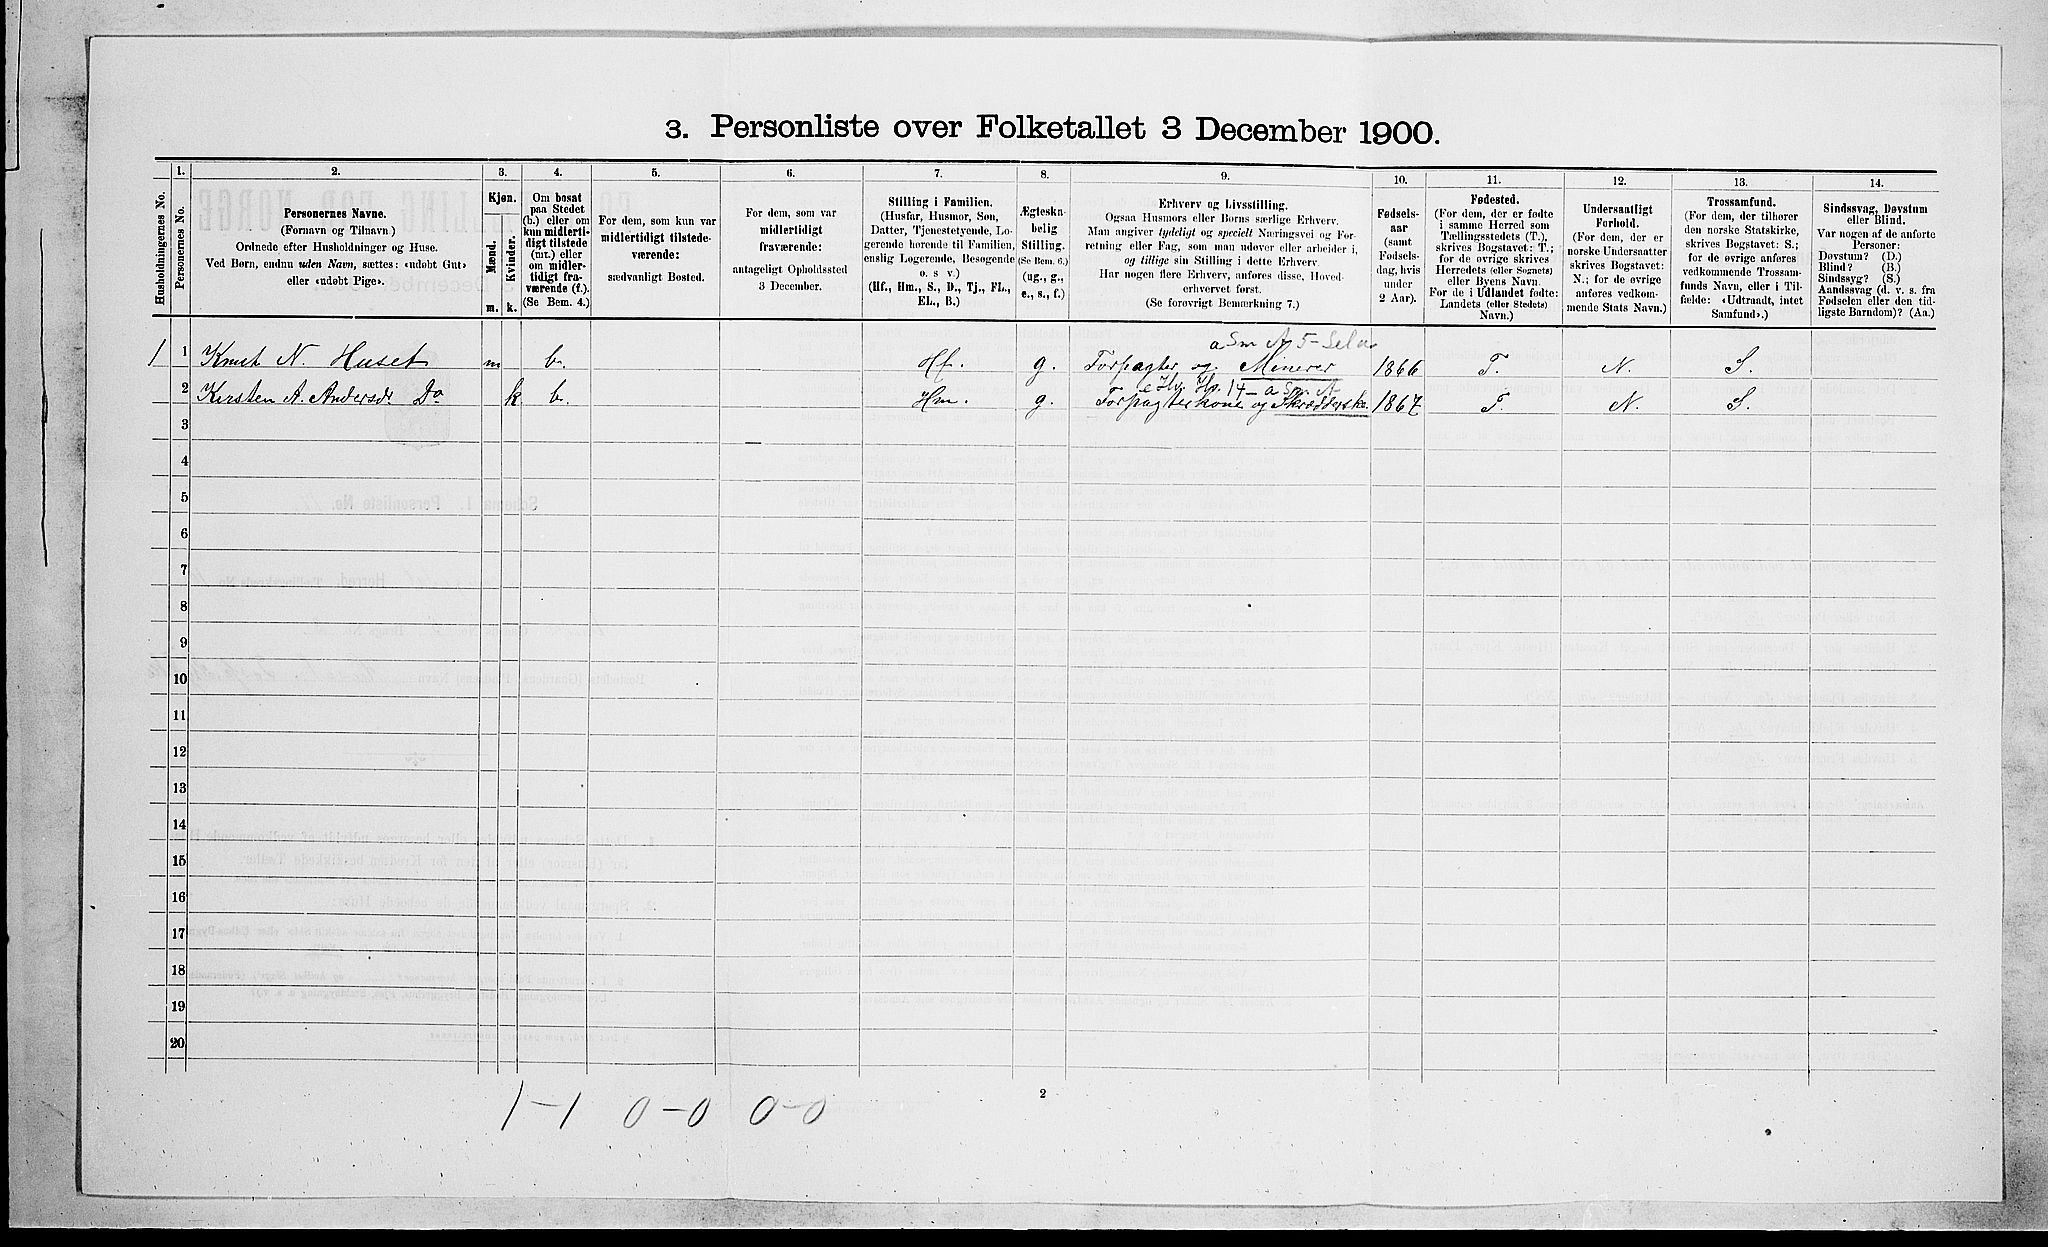 3. Personliste over Folketallet 3 December 1900.
1. 2. 3. 4. 5. 6. 7. 8. 9. 10. 11. 12. 13. 14.
Husholdningernes No.
Personernes No.
Personernes Navne.
(Fornavn og Tilnavn.)
Ordnede efter Husholdninger og Huse.
Ved Børn, endnu uden Navn, sættes: «udøbt Gut»
eller «udøbt Pige».
Kjøn.
Mænd.
Kvinder.
m. k.
Om bosat
paa Stedet
(b.) eller om
kun midlerti-
digt tilstede
(mt.) eller
om midler-
tidigt fra-
værende (f.).
(Se Bem. 4.)
For dem, som kun var
midlertidigt tilstede-
værende:
sædvanligt Bosted.
For dem, som var
midlertidigt
fraværende:
antageligt Opholdssted
3 December.
Stilling i Familien.
(Husfar, Husmor, Søn,
Datter, Tjenestetyende, Lo-
gerende hørende til Familien,
enslig Logerende, Besøgende
o. s v.)
(Hf., Hm., S., D., Tj., FL.,
EL., B.)
Ægteska-
belig
Stilling.
(Se Bem. 6.)
(ug., g.,
e., s., f.)
Erhverv og Livsstilling.
Ogsaa Husmors eller Børns særlige Erhverv.
Man angiver tydeligt og specielt Næringsvei og For-
retning eller Fag, som man udøver eller arbeider i,
og tillige sin Stilling i dette Erhverv.
Har nogen flere Erhverv, anføres disse, Hoved-
erhvervet først.
(Se forøvrigt Bemærkning 7.)
Fødsels-
aar
(samt
Fødsels-
dag, hvis
under
2 Aar).
Fødested.
(For dem, der er fødte
i samme Herred som
Tællingsstedets (T.),
skrives Bogstavet: T.;
for de øvrige skrives
Herredets (eller Sognets)
eller Byens Navn.
For de i Udlandet fødte:
Landets (eller Stedets)
Navn.)
Undersaatligt
Forhold.
(For dem, der er
norske Undersaatter
skrives Bogstavet:
N.; for de øvrige
anføres vedkom-
mende Stats Navn.)
Trossamfund.
(For dem, der tilhører
den norske Statskirke,
skrives Bogstavet: S.;
for de øvrige anføres
vedkommende Trossam-
funds Navn, eller i Til-
fælde: «Udtraadt, intet
Samfund».)
Sindssvag, Døvstum
eller Blind.
Var nogen af de anførte
Personer:
Døvstum? (D.)
Blind? (B.)
Sindssyg? (S.)
Aandssvag (d. v. s. fra
Fødselen eller den tid-
ligste Barndom)? (Aa.)
1 1 Knut N. Huset m b. Hf. g. Forpagter og Minerer 1866 T. N. S.
2 Kirsten A. Andersdr Do k b. Hm. g. Forpagterkone og Skrædderske. 1867 T. N. S.
3
4
5
6
7
8
9
10
11
12
13
14
15
16
17
18
19
20
1–1 0–0 0–0
2